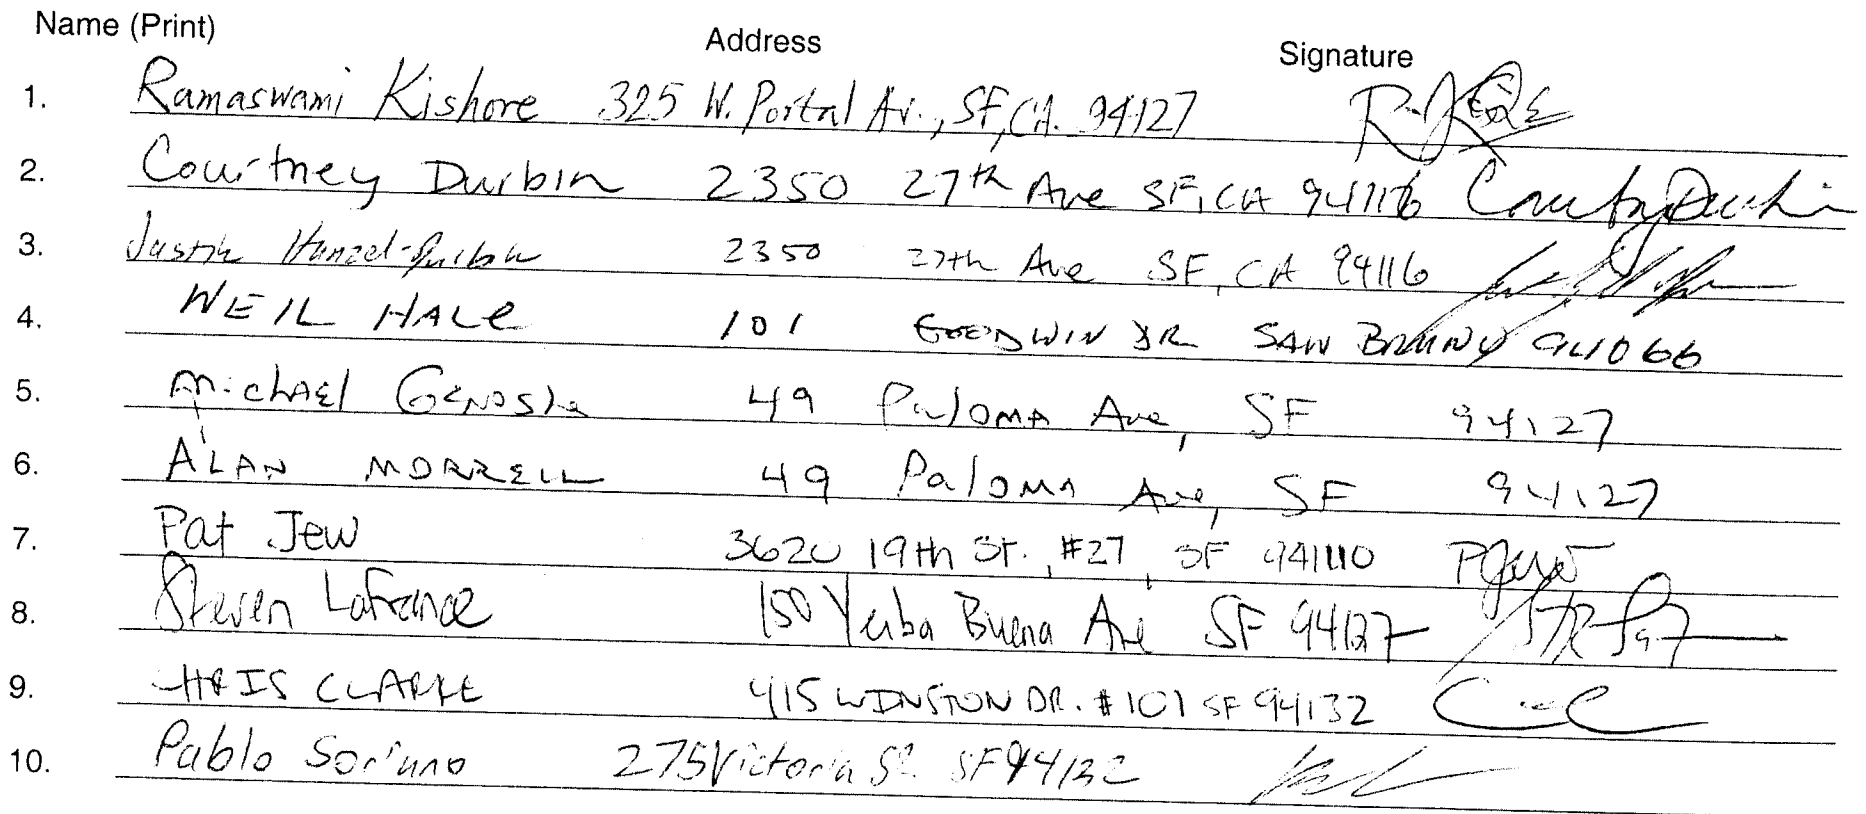 Name (Print) Address Signature
1. Ramaswami Kishore 325 W. Portal Av., SF, CA. 94127
2. Courtney Durbin 2350 27th Ave SF, CA 94116 Courtney Durbin
3. Justin Hanzel-Durbin 2350 27th Ave SF, CA 94116
4. NEIL HALE 101 GOODWIN DR SAN BRUNO 94066
5. Michael 49 Paloma Ave, SF 94127
6. ALAN MORRELL 49 Paloma Ave, SF 94127
7. Pat Jew 3620 19th St., #27, SF 94110 PJew
8. Steven LaFrance 150 Yerba Buena Ave SF 94127
9. CHRIS CLARKE 415 WINSTON DR. #101 SF 94132
10. Pablo Soriano 275 Victoria St. SF 94132